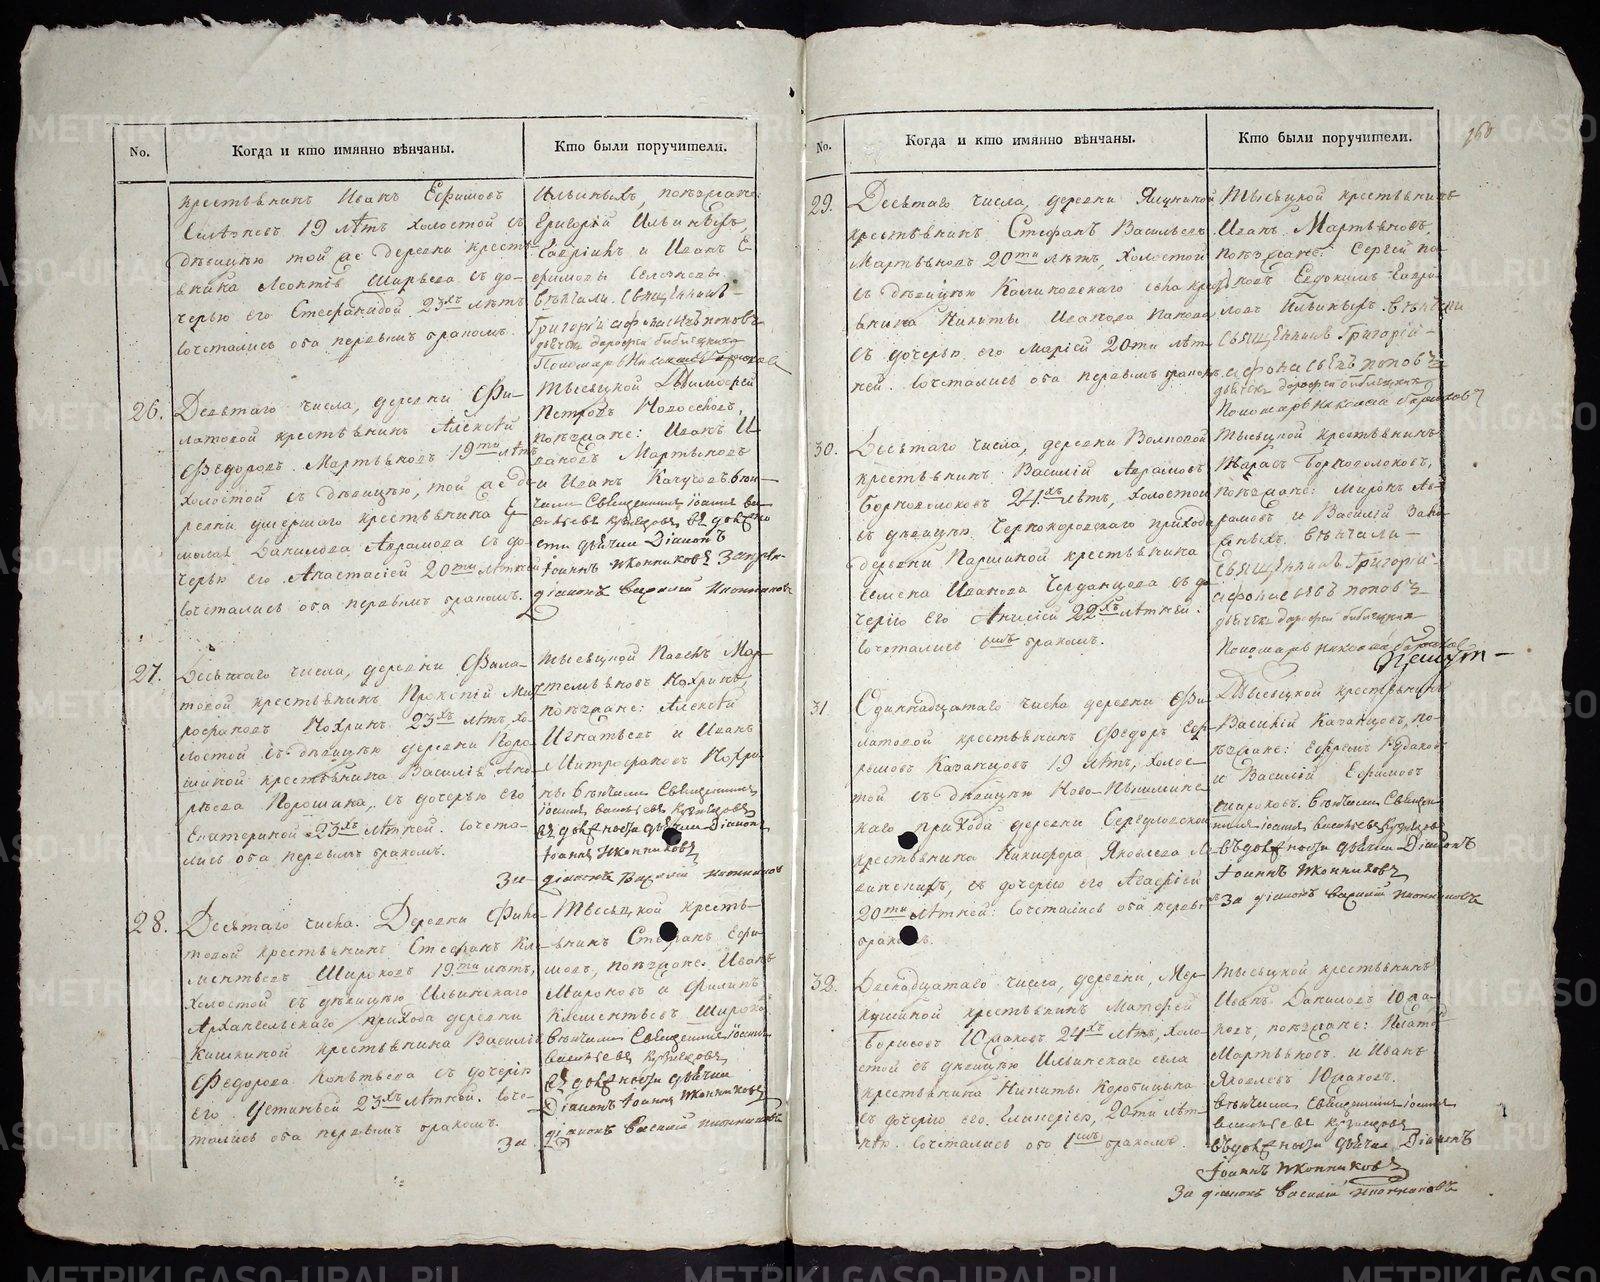 No.
Когда и кто имянно вѣнчаны.
Кто были поручители.
крестьянинъ Иванъ Ефимовъ
19 лѣтъ холостой съ
дѣвицею той же деревни кресть-
янина Леонтія Ширяева съ до-
черью его Стефанидой 23хъ лѣтъ
сочетались оба первымъ бракомъ.
Ильиныхъ, поѣзжане:
Григорій Ильиныхъ,
и Иванъ Е-
фимовы
вѣнчали. Священникъ
Григорій Афонасьевъ Поповъ
дьячекъ Дорофей
Пономарь Николай
26.
Девятаго числа, деревни Фи-
латовой крестьянинъ Алексѣй
Федоровъ Мартьяновъ 19ти лѣтъ
холостой съ дѣвицею, той же де-
ревни умершаго крестьянина Ер-
молая Данилова Аврамова съ до-
черью его Анастасіей 20ти лѣтней
сочетались оба первымъ бракомъ.
Тысяцкой Тимофей
Петровъ Новоселовъ,
поѣзжане: Иванъ И-
вановъ Мартьяновъ
и Иванъ Качусовъ. вѣн-
чали Священникъ Іоаннъ Ва-
сильевъ Кузнецовъ въ должно-
сти дьячка Діаконъ
Іоаннъ Иконниковъ За поно-
діаконъ Василій Иконниковъ
27.
Десятаго числа, деревни Фила-
товой крестьянинъ Прокопій Мит-
рофановъ Мохринъ 23хъ лѣтъ хо-
лостой съ дѣвицею деревни Поро-
шиной крестьянина Василія Анд-
рѣева Порошина, съ дочерью его
Екатериной 23хъ лѣтней. Сочета-
лись оба первымъ бракомъ.
Тысяцкой Павелъ Мар-
темьяновъ Мохринъ,
поѣзжане: Алексѣй
Игнатьевъ и Иванъ
Митрофановъ Мохри-
ны вѣнчали Священникъ
Іоаннъ Васильевъ Кузнецовъ
въ должности дьячка Діаконъ
Іоаннъ Иконниковъ
За діаконъ Василій Иконниковъ
28.
Десятаго числа. Деревни Фила-
товой крестьянинъ Стефанъ Кле-
ментьевъ Широковъ 19ти лѣтъ,
холостой съ дѣвицею Ильинскаго
Архангельскаго прихода деревни
Кишкиной крестьянина Василія
Федорова Копытьева съ дочерью
его Устиньей 23хъ лѣтней. Соче-
тались оба первымъ бракомъ.
За
Тысяцкой кресть-
янинъ Стефанъ Ефи-
мовъ, поѣзжане: Иванъ
Мироновъ и Филипъ
Клементьевъ Широко-
вы вѣнчали Священникъ Іоаннъ
Васильевъ Кузнецовъ
въ должности дьячка
Діаконъ Іоаннъ Иконниковъ
діаконъ Василій Иконниковъ
No.
Когда и кто имянно вѣнчаны.
Кто были поручители.
160
29.
Десятаго числа, деревни Ялуниной
крестьянинъ Стефанъ Васильевъ
Мартьяновъ 20ти лѣтъ, холостой
съ дѣвицею Калиновскаго села кресть-
янина Никиты Иванова Панова
съ дочерью его Маріей 20ти лѣт-
ней. Сочетались оба первымъ бракомъ.
Тысяцкой крестьянинъ
Иванъ Мартьяновъ,
поѣзжане: Сергей По-
повъ Евдокимъ Гаври-
ловъ Ильиныхъ. вѣнчали
Священникъ Григорій
Афонасьевъ Поповъ
дьячекъ Дорофей
Пономарь Николай
30.
Десятаго числа, деревни Волковой
крестьянинъ Василій Аврамовъ
Борноволоковъ 24хъ лѣтъ, холостой
съ дѣвицею Чернокоровскаго прихода
деревни Паршиной крестьянина
Семена Иванова Черданцова съ до-
черію его Анисіей 22хъ лѣтней.
Сочетались 1мъ бракомъ.
Тысяцкой крестьянинъ
Тарасъ Борноволоковъ,
поѣзжане: Миронъ Ав-
рамовъ и Василій
вѣнчали
Священникъ Григорій
Афонасьевъ Поповъ
дьячекъ Дорофей
Пономарь Николай
31
Одиннадцатаго числа деревни Фи-
латовой крестьянинъ Федоръ Еф-
ремовъ Казанцовъ 19 лѣтъ, холос-
той съ дѣвицею Ново-Пышминс-
каго прихода деревни Сергуловской
крестьянина Никифора Яковлева
съ дочерію его Агафіей
20ти лѣтней: Сочетались оба первымъ
бракомъ.
Тысяцкой крестьянинъ
Василій Казанцовъ, по-
ѣзжане: Ефремъ
и Василій Ефимовъ
вѣнчали Священ-
никъ Іоаннъ Васильевъ Кузнецовъ
въ должности дьячка Діаконъ
Іоаннъ Иконниковъ
За діаконъ Василій Иконниковъ
32.
Двенадцатаго числа, деревни, Мер-
кушиной крестьянинъ Матфей
Борисовъ Юдаковъ 24хъ лѣтъ, холо-
стой съ дѣвицею Ильинскаго села
крестьянина Никиты Коробицына
съ дочерію его Гликеріею, 20ти лѣт-
нею. Сочетались оба 1мъ бракомъ.
Тысяцкой крестьянинъ
Иванъ Даниловъ Юда-
ковъ, поѣзжане: Игнатъ
Мартьяновъ и Иванъ
Яковлевъ Юдаковъ.
вѣнчали Священникъ Іоаннъ
Васильевъ Кузнецовъ
въ должности дьячка Діаконъ
Іоаннъ Иконниковъ
За діаконъ Василій Иконниковъ
METRIKI.GASO-URAL.RU